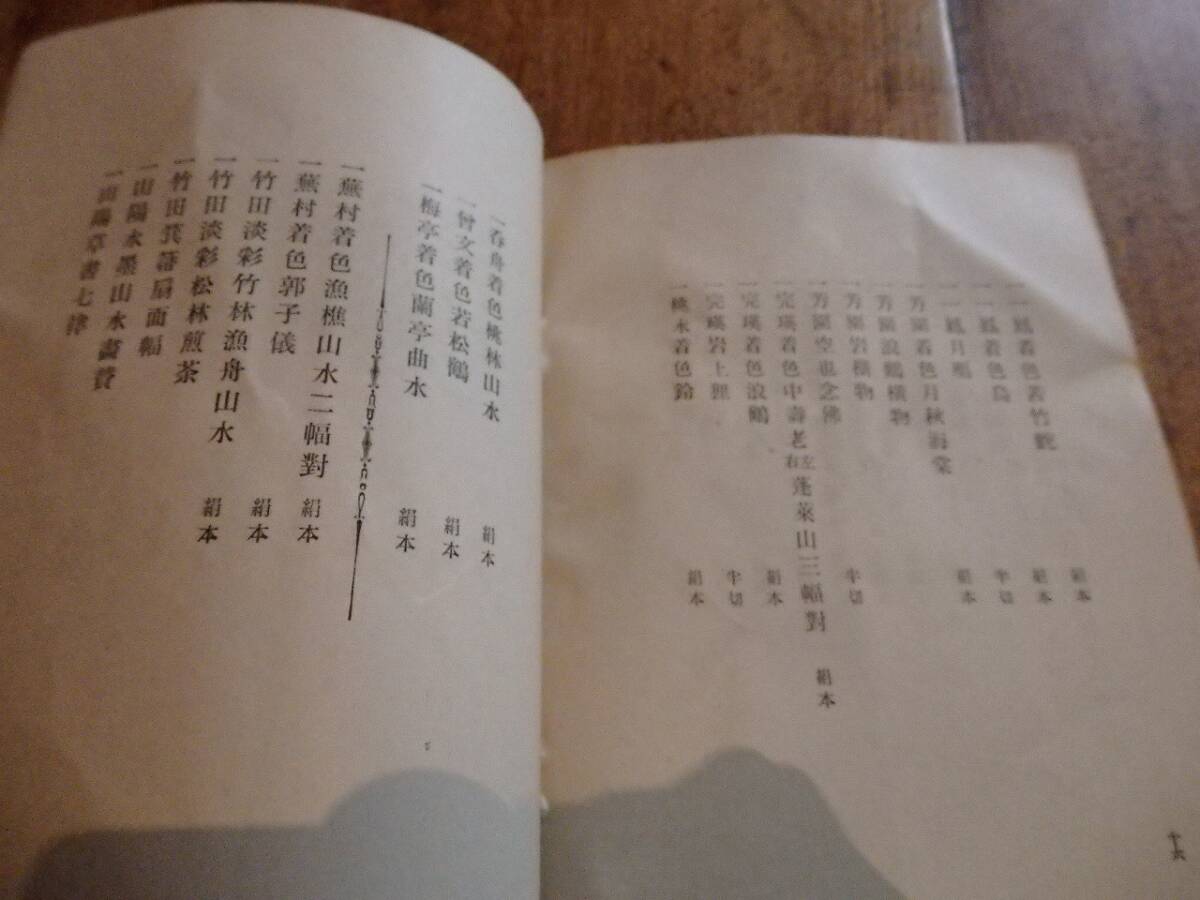 一鳳着色若竹
一鳳着色烏
一鳳月
芳園着色月秋海棠
芳園浪鶴横物
芳園岩横物
芳園空也念佛
完瑛着色中壽老左右蓬萊山三幅對
完瑛着色浪鶴
完瑛岩上狸
桃水着色鈴
絹本
絹本
半切
絹本
半切
絹本
絹本
半切
絹本
十六
一春舟着色桃林山水 絹本
一曾文着色若松鶴 絹本
一梅亭着色蘭亭曲水 絹本
一蕪村着色漁樵山水二幅對 絹本
一蕪村着色郭子儀 絹本
一竹田淡彩竹林漁舟山水 絹本
一竹田淡彩松林煎茶
一竹田箕箒扇面幅
一山陽水墨山水畫賛
一山陽草書七律